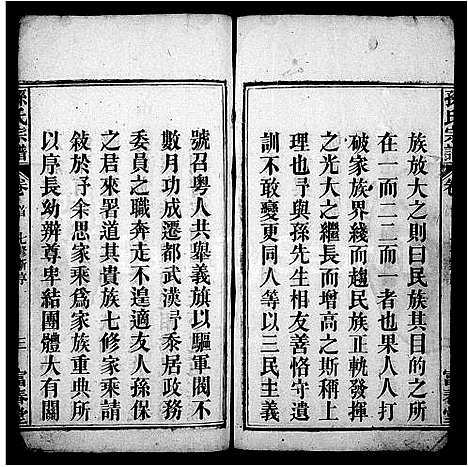 族放大之則曰民族其目的之所
在一而二二而一者也果人人打
破家族界綫而趨民族正軌發揮
之光大之繼長而增高之斯稱上
乘余嘗與孫先生相友善恪守遺
訓不敢變更同人等以三民主義
孫氏宗譜
號召粵人共舉義旗以驅軍閥不
數月功成遷都武漢予忝居政務
委員之職奔走不遑適友人孫保
之君來署道其貴族七修家乘請
敍於予余思家乘爲家族重典所
以序長幼辨尊卑結團體大有關
孫氏宗譜
卷首
三
富春堂